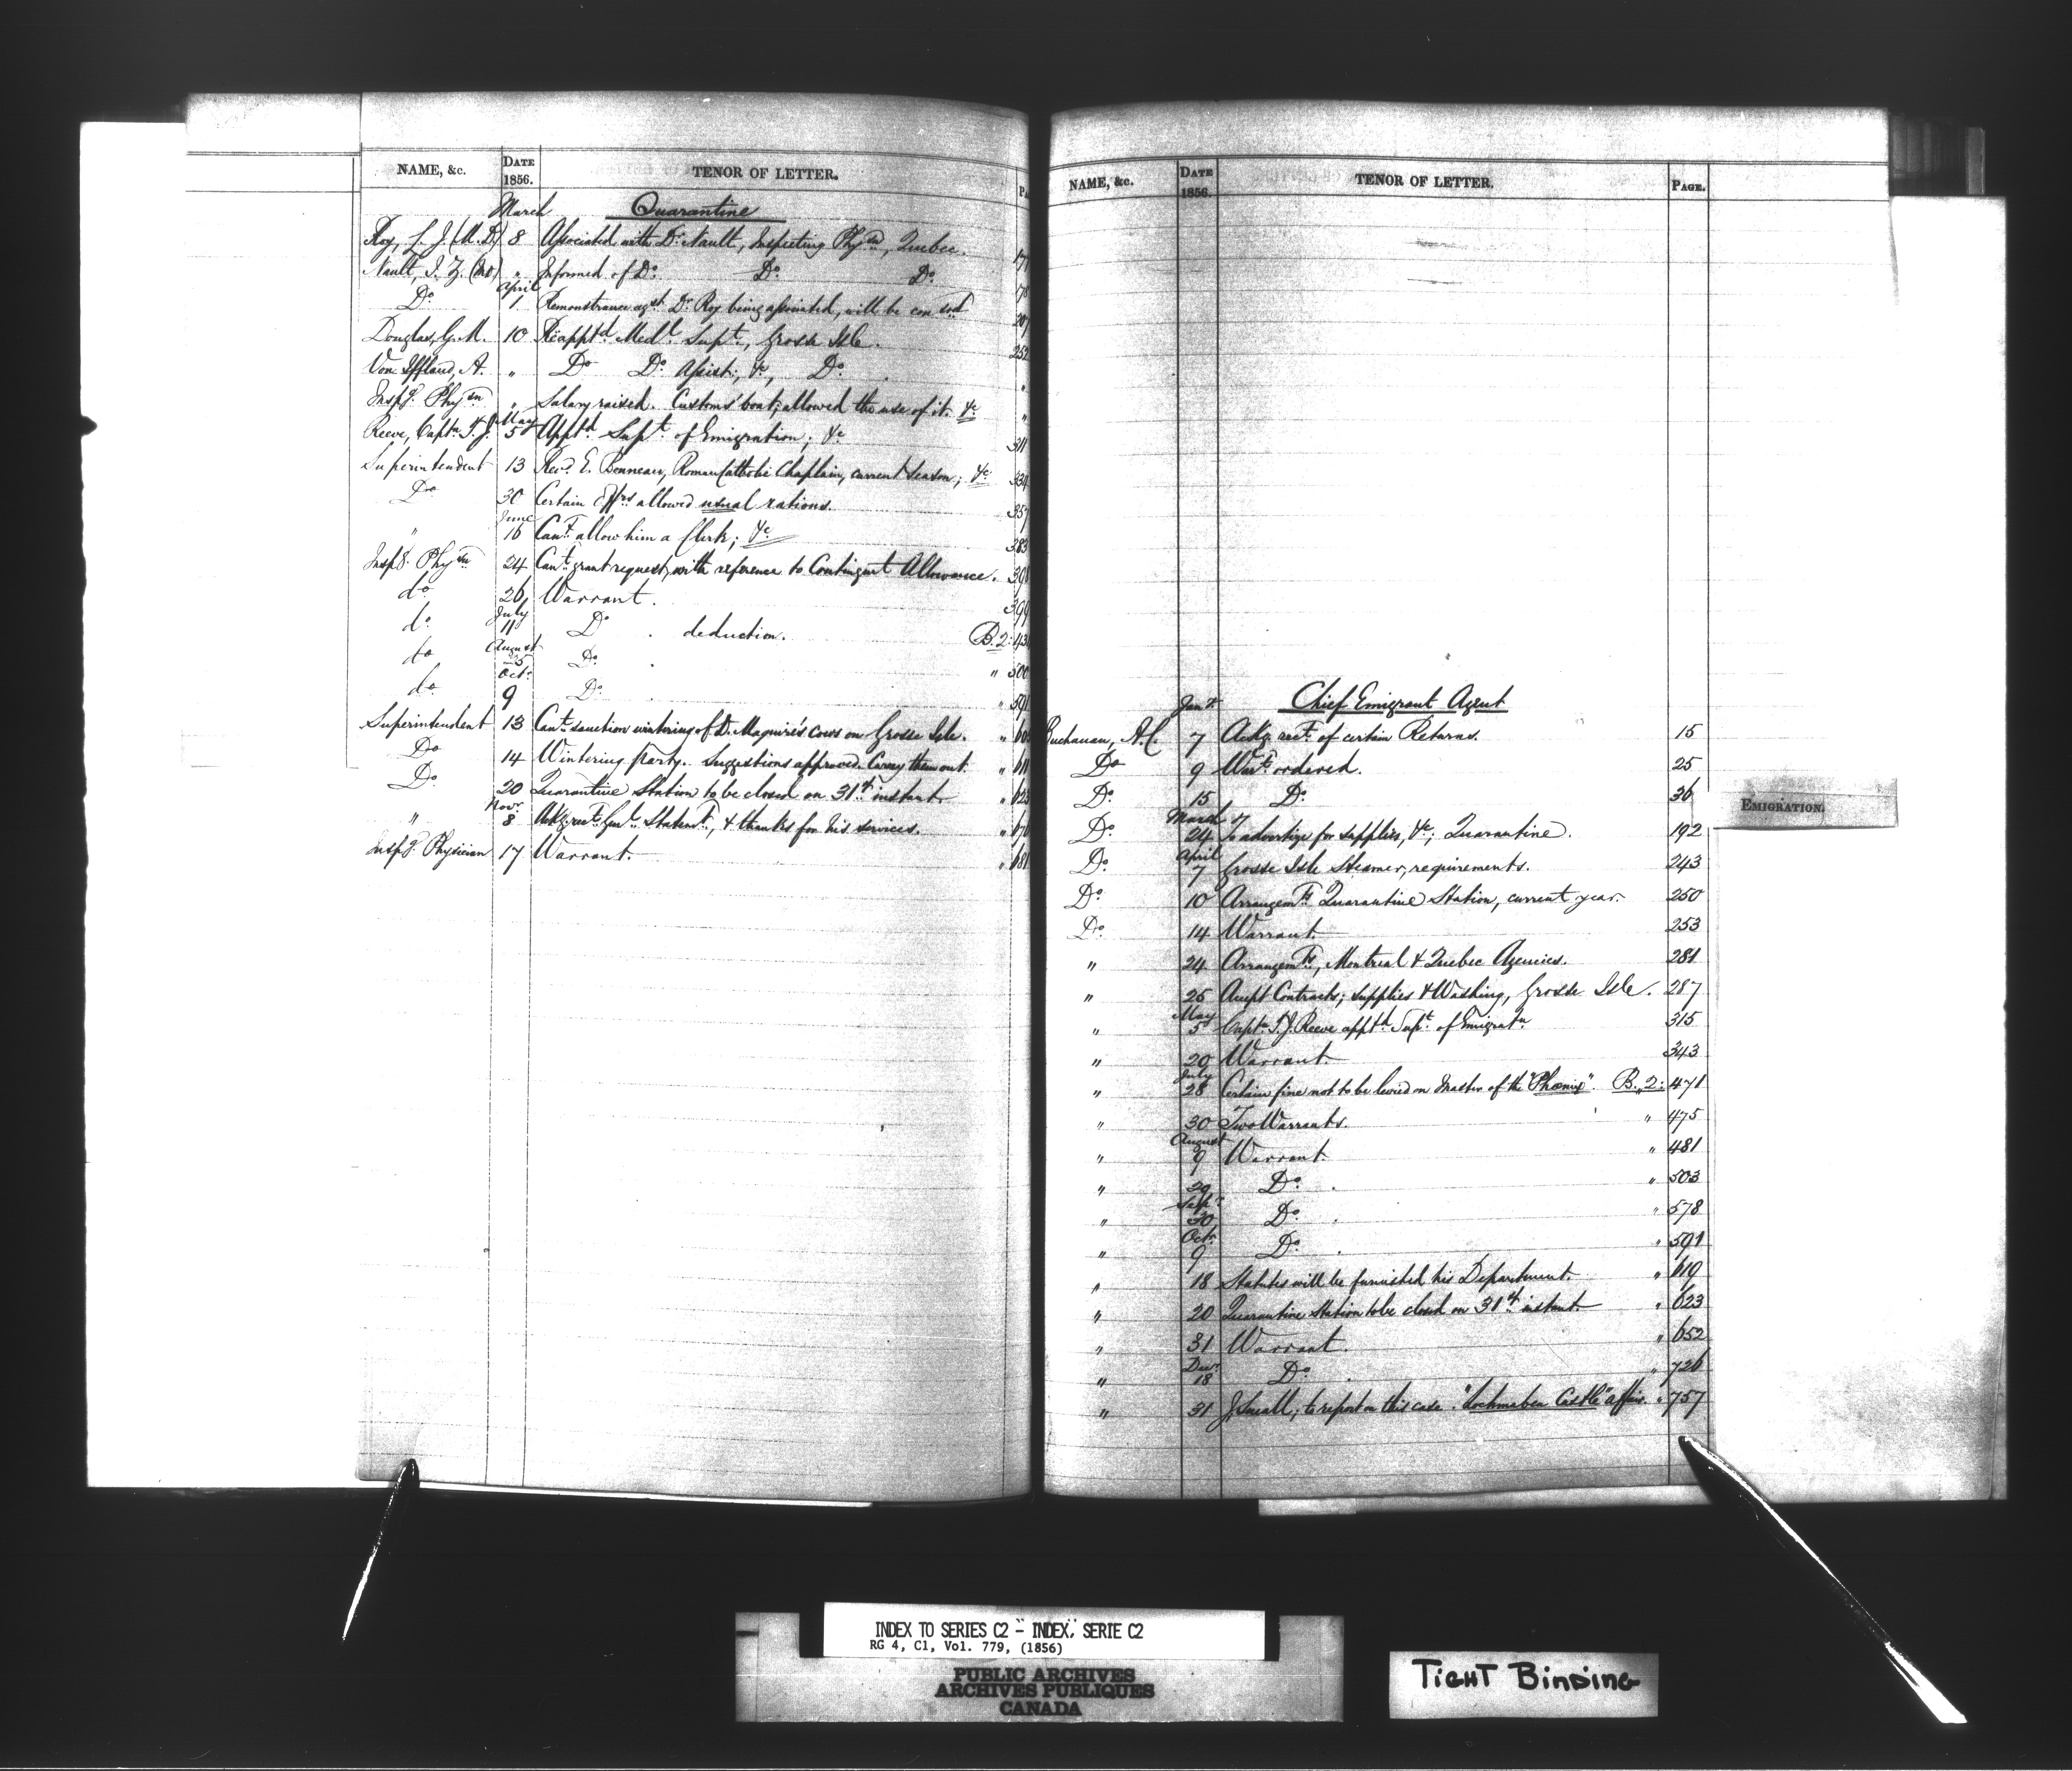 NAME, &c. DATE 1856. TENOR OF LETTER.
March Quarantine
Roy, L. J. (M.D.) 8 Associated with Dr. Nault, Inspecting Physn, Quebec. 177
Nault, J. Z. (MD) " Informed of Do. Do. Do. 178
Do. April 1 Remonstrance agst. Dr. Roy being associated, will be consd 207
Douglas, G. M. 10 Reapptd. Medl. Supt., Grosse Isle. 252
Von Iffland, A. " Do Do. Assist:, &c, Do. "
Inspg. Physn " Salary raised. Customs' boat; allowed the use of it. &c "
Reeve, Captn. T. J. May 5 Apptd Supt. of Emigration; &c 311
Superintendent 13 Revd. E. Bonneau, Roman Catholic Chaplain, current Season; &c. 334
Do 30 Certain Offrs allowed usual rations. 357
" June 16 Can't. allow him a Clerk; &c. 383
Inspg. Physn 24 Can't. grant request, with reference to Contingent Allowance. 398
do 26 Warrant. 399
do. July 11 Do . deduction. B. 2: 43
do August 25 Do. . " 500
do Oct. 9 Do. . " 591
Superintendent 13 Can't. sanction wintering of D. Maguire's cows on Grosse Isle. " 60
Do 14 Wintering party. Suggestions approved. Carry them out. " 611
Do. 20 Quarantine Station to be closed on 31st. instant. " 623
" Novr. 8 Ackg. rect. Genl. Statemt, & thanks for his services. " 670
Inspg. Physician 17 Warrant. " 681
NAME, &c. DATE 1856. TENOR OF LETTER. PAGE.
Jany. Chief Emigrant Agent
Buchanan, A.C. 7 Ackg. rect. of certain Returns. 15
Do 9 Wart. ordered. 25
Do. 15 Do. 36
Do. March 24 To advertize for supplies, &c; Quarantine. 192
Do. April 7 Grosse Isle Steamer, requirements. 243
Do. 10 Arrangemts. Quarantine Station, current year. 250
Do. 14 Warrant. 253
" 24 Arrangemts., Montreal & Quebec Agencies. 281
" 25 Accept Contracts; supplies & Washing, Grosse Isle. 287
" May 5 Captn. T. J. Reeve apptd. Supt. of Emigratn 315
" 20 Warrant. 343
" July 28 Certain fine not to be levied on Master of the "Phoenix". B. 2: 471
" 30 Two Warrants. " 475
" August 9 Warrant. " 481
" 29 Do. . " 503
" Sepr. 30 Do. . " 578
" Oct. 9 Do. . " 591
" 18 Statutes will be furnished his Department. " 619
" 20 Quarantine Station to be closed on 31st. instant. " 623
" 31 Warrant. " 652
" Decr. 18 Do . " 726
" 31 J. Small, to report on this case. "Lochmaben Castle" affair. " 757
EMIGRATION.
INDEX TO SERIES C2 - INDEX, SERIE C2
RG 4, C1, Vol. 779, (1856)
PUBLIC ARCHIVES
ARCHIVES PUBLIQUES
CANADA
TIGHT BINDING